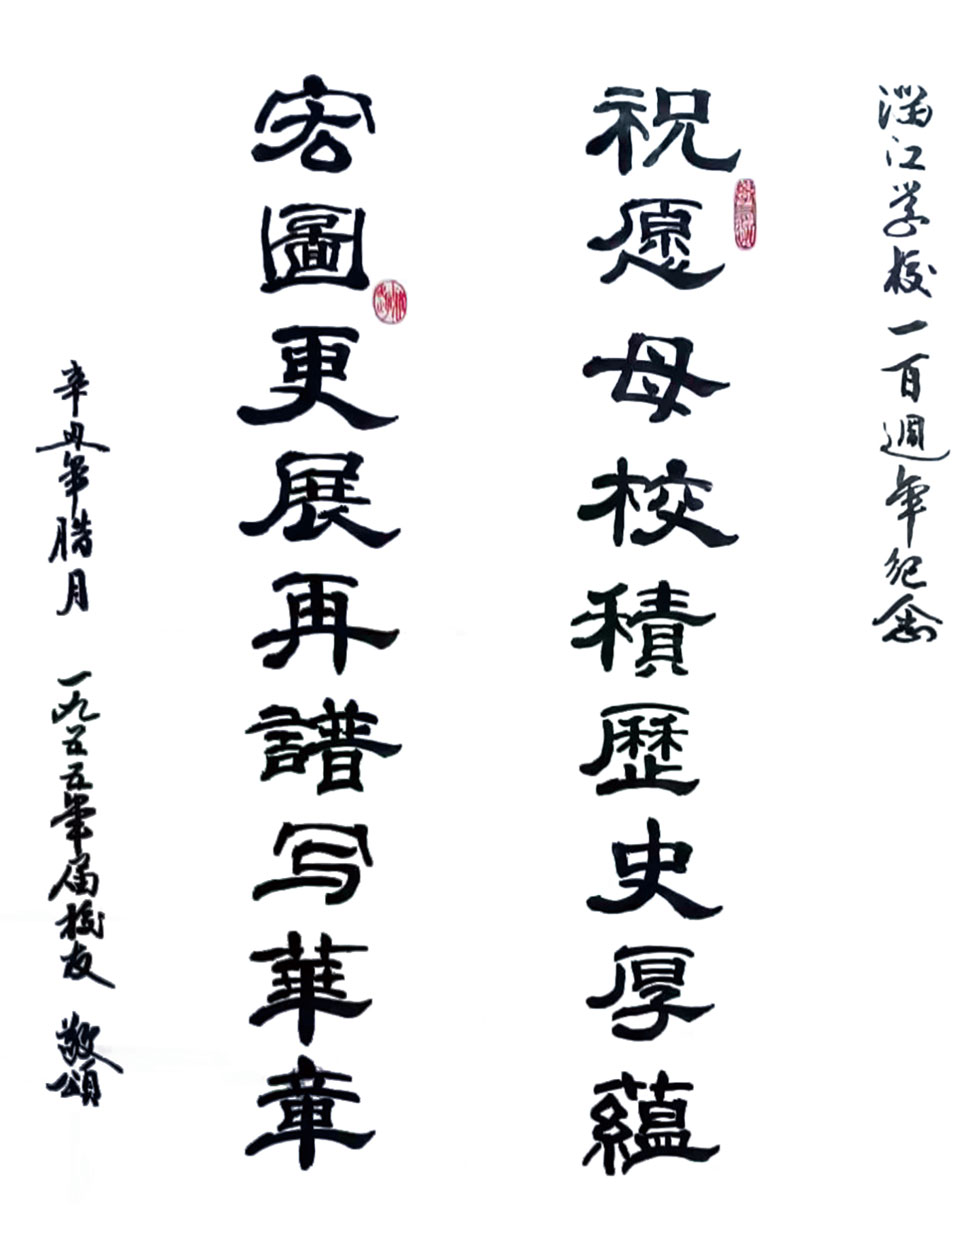 江学校一百週年纪念
祝愿母校積歷史厚蘊
宏圖更展再譜写華章
辛丑年腊月 一九五年届校友 敬頌